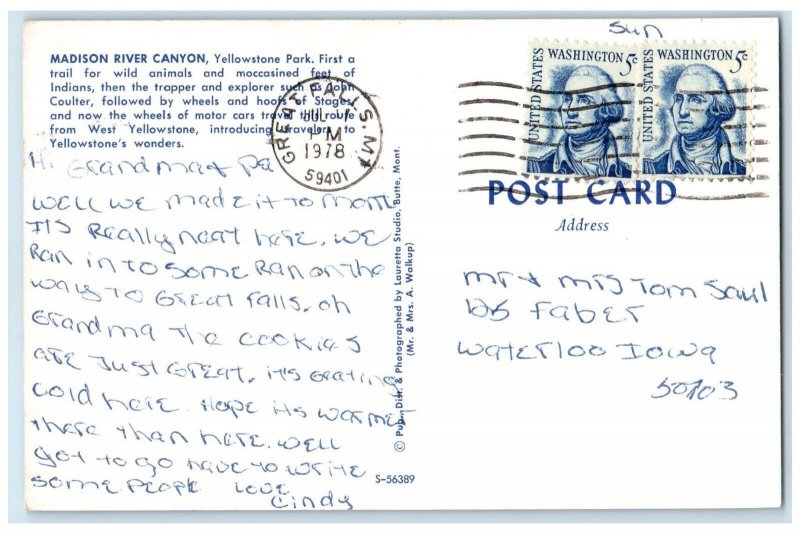 MADISON RIVER CANYON, Yellowstone Park. First a
trail for wild animals and moccasined feet of
Indians, then the trapper and explorer such as John
Coulter, followed by wheels and hoofs of Stages,
and now the wheels of motor cars travel the route
from West Yellowstone, introducing travelers to
Yellowstone's wonders.
GREAT FALLS, MT
JUL 17
PM
1978
59401
Hi Grandma & Pa
Well we made it to Mont
its Really neat here. we
Ran in to some Ran on the
way to Great Falls. oh
Grandma the cookies
are Just Great. its
cold here. Hope its warmer
there than here. well
got to go have to write
some people Love
Cindy
© Pub., Dist. & Photographed by Lauretta Studio, Butte, Mont.
(Mr. & Mrs. A. Walkup)
S-56389
Sun
UNITED STATES WASHINGTON 5c
UNITED STATES WASHINGTON 5c
POST CARD
Address
mr & mrs Tom Saul
Faber
Waterloo Iowa
50703